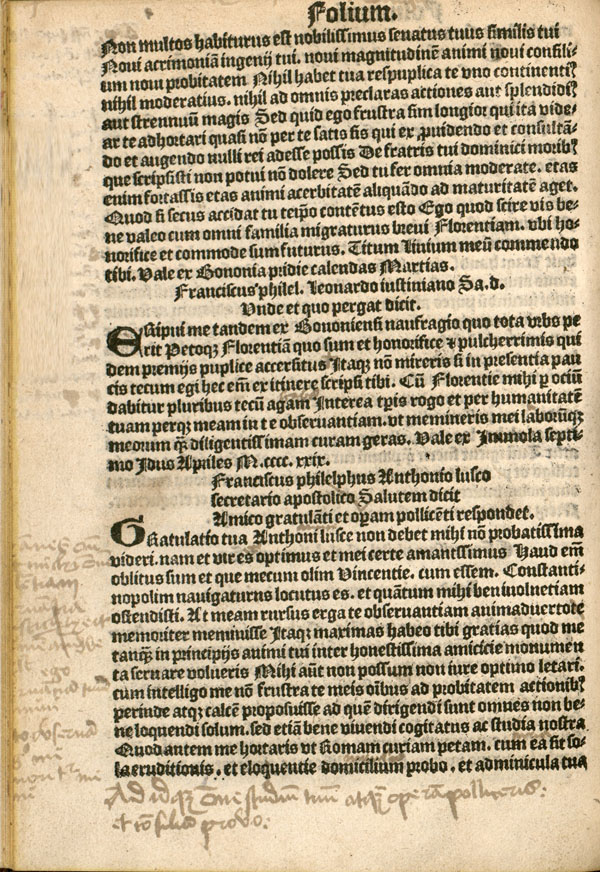 Folium.
Non multos habiturus est nobilissimus senatus tuus similis tui
Noui acrimoniā ingenij tui. noui magnitudinē animi noui consili-
um noui probitatem Nihil habet tua respuplica te vno continentiꝰ
nihil moderatius. nihil ad omnis preclaras actiones aut splendidiꝰ
aut strennuū magis Sed quid ego frustra sim longior qui ita vide-
ar te adhortari quasi nō per te satis sis qui ex ꝓuidendo et consultā-
do et augendo nulli rei adesse possis De fratris tui dominici moribꝰ
que scripsisti non potui nō dolere Sed tu fer omnia moderate. etas
enim fortassis etas animi acerbitatē aliquādo ad maturitatē aget.
Quod si secus accidat tu teipo contētus esto Ego quod scire vis be-
ne valeo cum omni familia migraturus breui Florentiam. vbi ho-
norifice et commode sum futurus. Titum Liuium meū commendo
tibi. Vale ex Bononia pridie calendas Martias.
Franciscus philel. Leonardo iustiniano Sa. d.
Vnde et quo pergat dicit.
ESipui me tandem ex Bononiensi naufragio quo tota vrbs pe
rit Petoqꝫ Florentiā quo sum et honorifice ꝛ pulcherrimis qui
dem premijs puplice accersitus Itaqꝫ nō mireris si in presentia pau
cis tecum egi hec em̄ ex itinere scripsi tibi. Cū Florentie mihi ꝑ ociū
dabitur pluribus tecū agam Interea tp̄is rogo et per humanitatē
tuam perqꝫ meam in te obseruantiam. vt memineris mei laborūqꝫ
meorum qꝫ̄ diligentissimam curam geras. Vale ex Immola septi-
mo Idus Apriles M.cccc. xxix.
Franciscus philelphus Anthonio lusco
secretario apostolico Salutem dicit
Amico gratulāti et opam pollicēti respondet.
GRatulatio tua Anthoni lusce non debet mihi nō probatissima
videri. nam et vir es optimus et mei certe amantissimus Haud em̄
oblitus sum et que mecum olim Vincentie. cum essem. Constanti-
nopolim nauigaturus locutus es. et quātum mihi beniuolnetiam
ostendisti. At meam rursus erga te obseruantiam animaduertote
memoriter meminisse Itaqꝫ maximas habeo tibi gratias quod me
tanqꝫ̄ in principijs animi tui inter honestissima amicicie monumen
ta seruare volueris Mihi aūt non possum non iure optimo letari.
cum intelligo me nō frustra te meis oībus ad probitatem actionibꝰ
perinde atqꝫ calcē proposuisse ad quē dirigendi sunt omnes non be-
ne loquendi solum. sed etiā bene viuendi cogitatus ac studia nostra
Quod autem me hortaris vt Romam curiam petam. cum ea sit so-
la eruditionis. et eloquentie domicilium probo. et adminicula tua
Ad idqꝫ om̄e studiū tuū atqꝫ operā polliceris:
et consiliū probo: